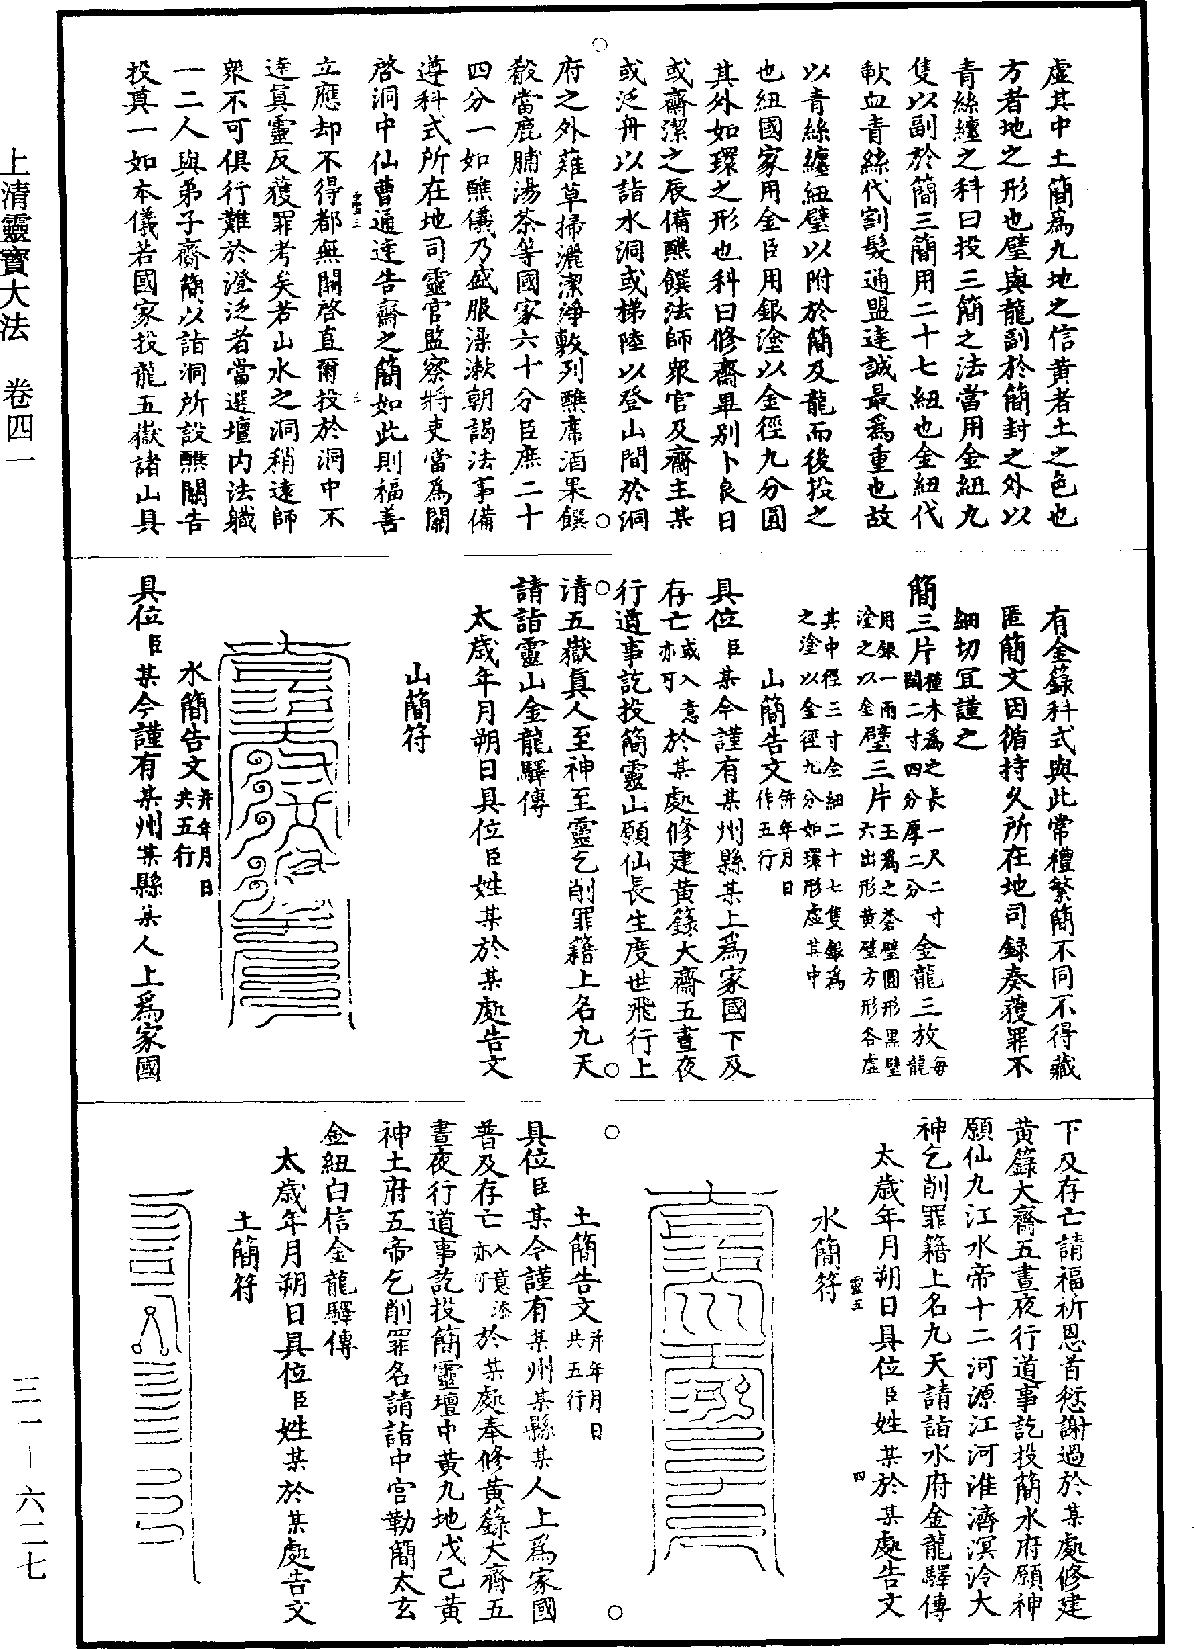 虛其中土簡爲九地之信黃者土之色也
方者地之形也璧與龍副於簡封之外以
青絲纏之科曰投三簡之法當用金紐九
隻以副於簡三簡用二十七紐也金紐代
歃血青絲代割髮通盟達誠最爲重也故
以青絲纏紐璧以附於簡及龍而後投之
也紐國家用金臣用銀塗以金徑九分圓
其外如環之形也科曰修齋畢別卜良日
或齋潔之辰備醮饌法師衆官及齋主某
或泛舟以詣水洞或梯陸以登山間於洞
府之外薙草掃灑潔淨敷列醮席酒果饌
殽當鹿脯湯茶等國家六十分臣庶二十
四分一如醮儀乃盛服澡漱朝謁法事備
遵科式所在地司靈官監察將吏當爲關
啓洞中仙曹通達告齋之簡如此則福善
立應却不得都無關啓直爾投於洞中不
達眞靈反獲罪考矣若山水之洞稍遠師
衆不可俱行難於澄泛者當選壇內法職
一二人與弟子齎簡以詣洞所設醮關告
投奠一如本儀若國家投龍五嶽諸山具
有金籙科式與此常禮繁簡不同不得藏
匿簡文因循持久所在地司録奏獲罪不
細切宜謹之
簡三片槿木爲之長一尺二寸闊二寸四分厚二分金龍三放每龍用銀一兩塗之以金璧三片玉爲之蒼璧圓形黑璧六出形黃璧方形各虛其中徑三寸金紐二十七隻銀爲之塗以金徑九分如環形虛其中
山簡告文併年月日作五行
具位臣某今謹有某州縣某上爲家國下及
存亡或入意亦可於某處修建黃籙大齋五晝夜
行道事訖投簡靈山願仙長生度世飛行上
清五嶽眞人至神至靈乞削罪籍上名九天
請詣靈山金龍驛傳
太歲年月朔日具位臣姓某於某處告文
山簡符
水簡告文并年月日共五行
具位臣某今謹有某州某縣某人上爲家國
下及存亡請福祈恩首愆謝過於某處修建
黃籙大齋五晝夜行道事訖投簡水府願神
願仙九江水帝十二河源江河淮濟溟泠大
神乞削罪籍上名九天請詣水府金龍驛傳
太歲年月朔日具位臣姓某於某處告文
靈五
四
水簡符
土簡告文并年月日共五行
具位臣某今謹有某州某縣某人上爲家國
普及存亡入意添亦可於某處奉修黃籙大齋五
晝夜行道事訖投簡靈壇中黃九地戊己黃
神土府五帝乞削罪名請詣中宮勒簡太玄
金紐白信金龍驛傳
太歲年月朔日具位臣姓某於某處告文
土簡符
上清靈寶大法 卷四一
三一—六二七